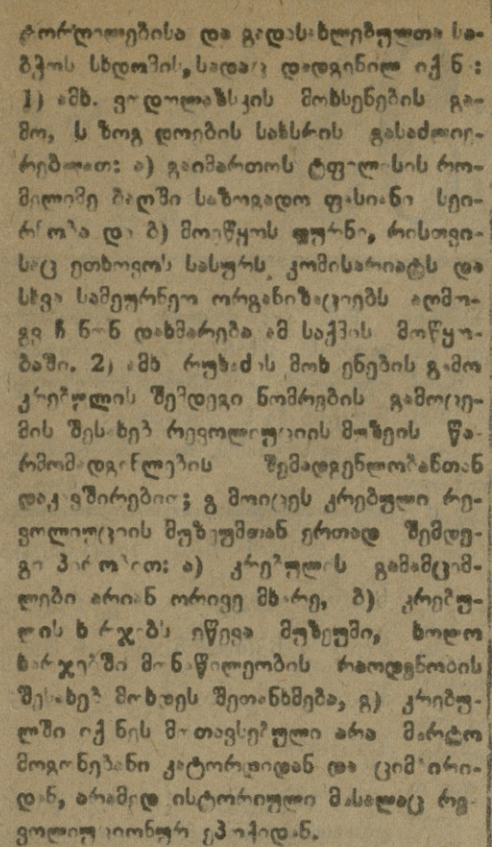 ტორღელებისა და გადასახლებულთა სა-
ბჭოს სხდომის, სადაც დადგენილ იქნა:
1) ამხ. მოხსენების გა-
მო, საზოგადოების სახსრის გასაძლიე-
რებლათ: ა) გაიმართოს ტფილისის რო-
მელიმე ბაღში საზოგადო ფასიანი სეი-
რნობა და ბ) მოეწყოს ჟურნი, რისთვი-
საც ეთხოვოს სასურს. კომისარიატს და
სხვა სამეურნეო ორგანიზაციებს აღმო-
უჩინონ დახმარება ამ საქმის მოწყო-
ბაში. 2) ამხ. რუხაძის მოხსენების გამო
კრებულის შემდეგი ნომრების გამოცე-
მის შესახებ რევოლიუციის მუზეის წა-
რმომადგენლების შემადგენლობასთან
დაკავშირებით; გამოიცეს კრებული რე-
ვოლიუციის მუზეუმთან ერთად შემდე-
გი პირობით: ა) კრებულის გამამცემ-
ლები არიან ორივე მხარე, ბ) კრებუ-
ლის ხარჯებს იწევა მუზეუმი, ხოლო
ხარჯებში მონაწილეობის რაოდენობის
შესახებ მოხდეს შეთანხმება, გ) კრებუ-
ლში იქნეს მოთავსებული არა მარტო
მოგონებანი კატორღიდან და ციმბირი-
დან, არამედ ისტორიული მასალაც რე-
ვოლიუციონურ ეპოქიდან.